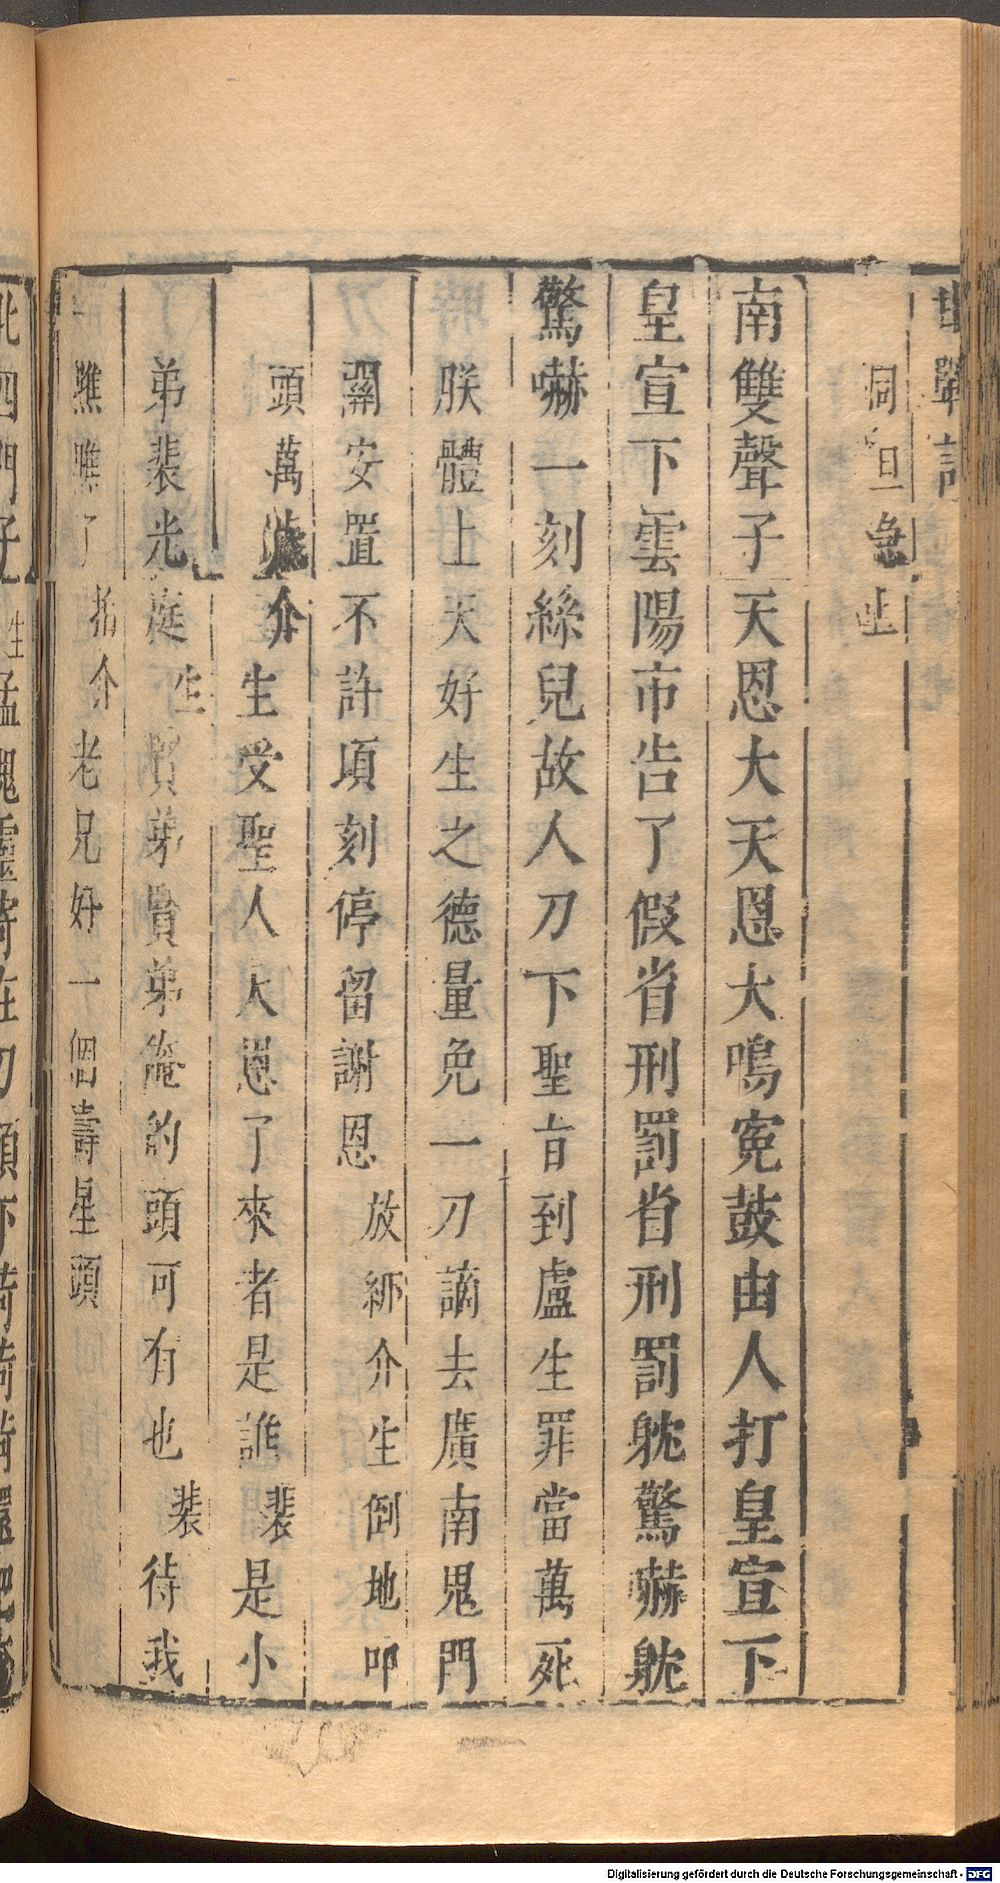 同旦急止
南雙聲子天恩大天恩大鳴寃鼓由人打皇宣下
皇宣下雲陽市告了假省刑罰省刑罰躭驚嚇躭
驚嚇一刻絲兒故人刀下聖旨到盧生罪當萬死
朕體上天好生之德量免一刀謫去廣南鬼門
關安置不許頃刻停留謝恩放綁介生倒地叩
頭萬歲介生受聖人大恩了來者是誰裴是小
弟裴光庭生賢弟賢弟俺的頭可有也裴待我
瞧瞧了拍介老兄好一個壽星頭
北四門子生猛魂靈寄在刀頭下荷荷荷還把
Digitalisierung gefördert durch die Deutsche Forschungsgemeinschaft - DFG